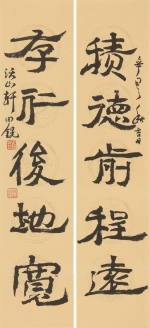 積德前程遠
存仁後地寬